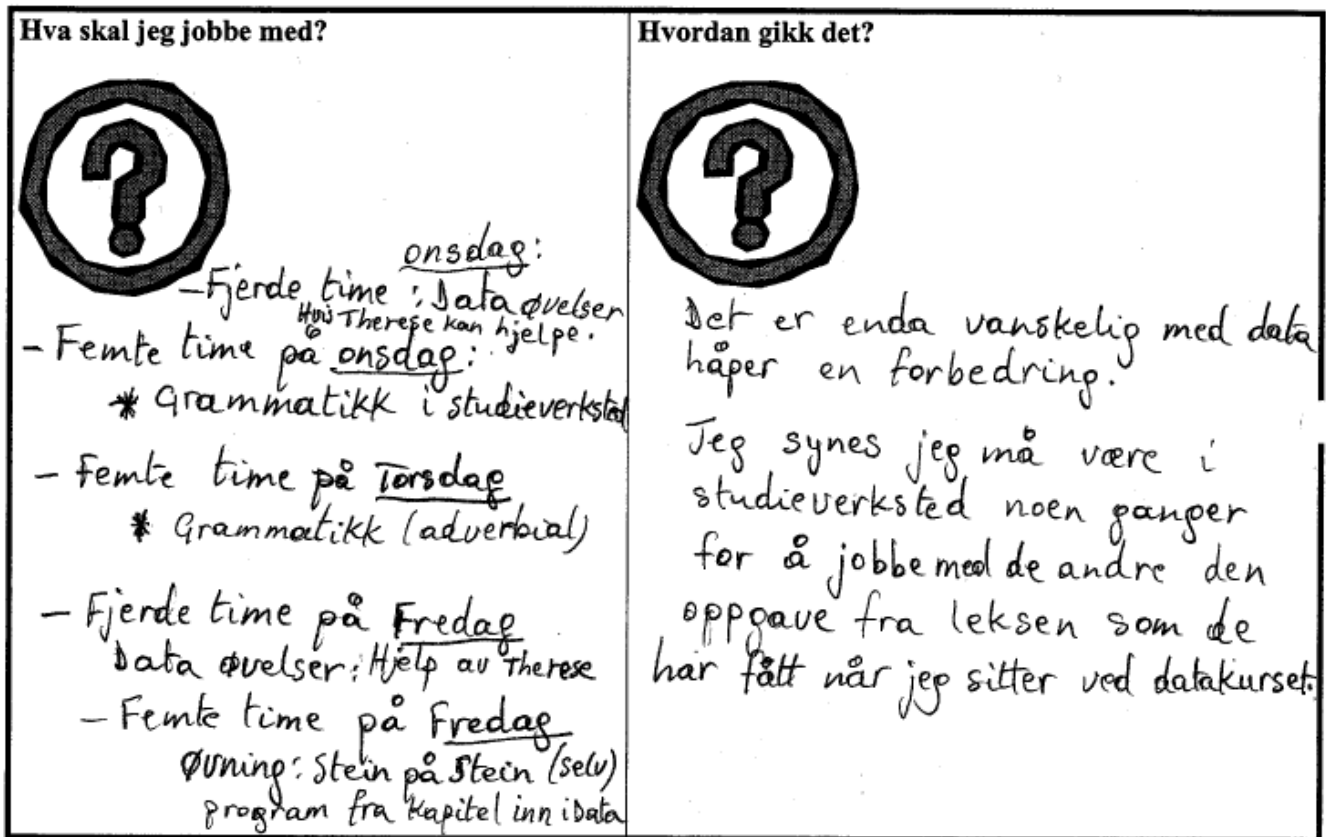 Hva skal jeg jobbe med?
onsdag:
- Fjerde time : Data øvelser
Hvis Therese kan hjelpe.
- Femte time på onsdag:
* Grammatikk i studieverksted
- Femte time på Torsdag
* Grammatikk (adverbial)
- Fjerde time på Fredag
Data øvelser: Hjelp av Therese
- Femte time på Fredag
Øvning: Stein på Stein (selv)
program fra Kapitel inn i Data
Hvordan gikk det?
Det er enda vanskelig med data
håper en forbedring.
Jeg synes jeg må være i
studieverksted noen ganger
for å jobbe med de andre den
oppgave fra leksen som de
har fått når jeg sitter ved datakurset.